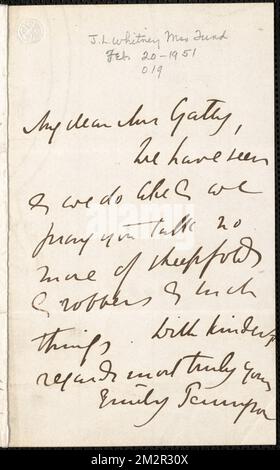 J. L. Whitney Mss Fund
Feb. 20-1951
019
My dear Mrs Gatty,
We have seen
& we do like & we
pray you talk no
more of sheepfolds
& robbers & such
things. With kindest
regards most truly yours
Emily Tennyson
alamy
Image ID: 2M2R30X
www.alamy.com